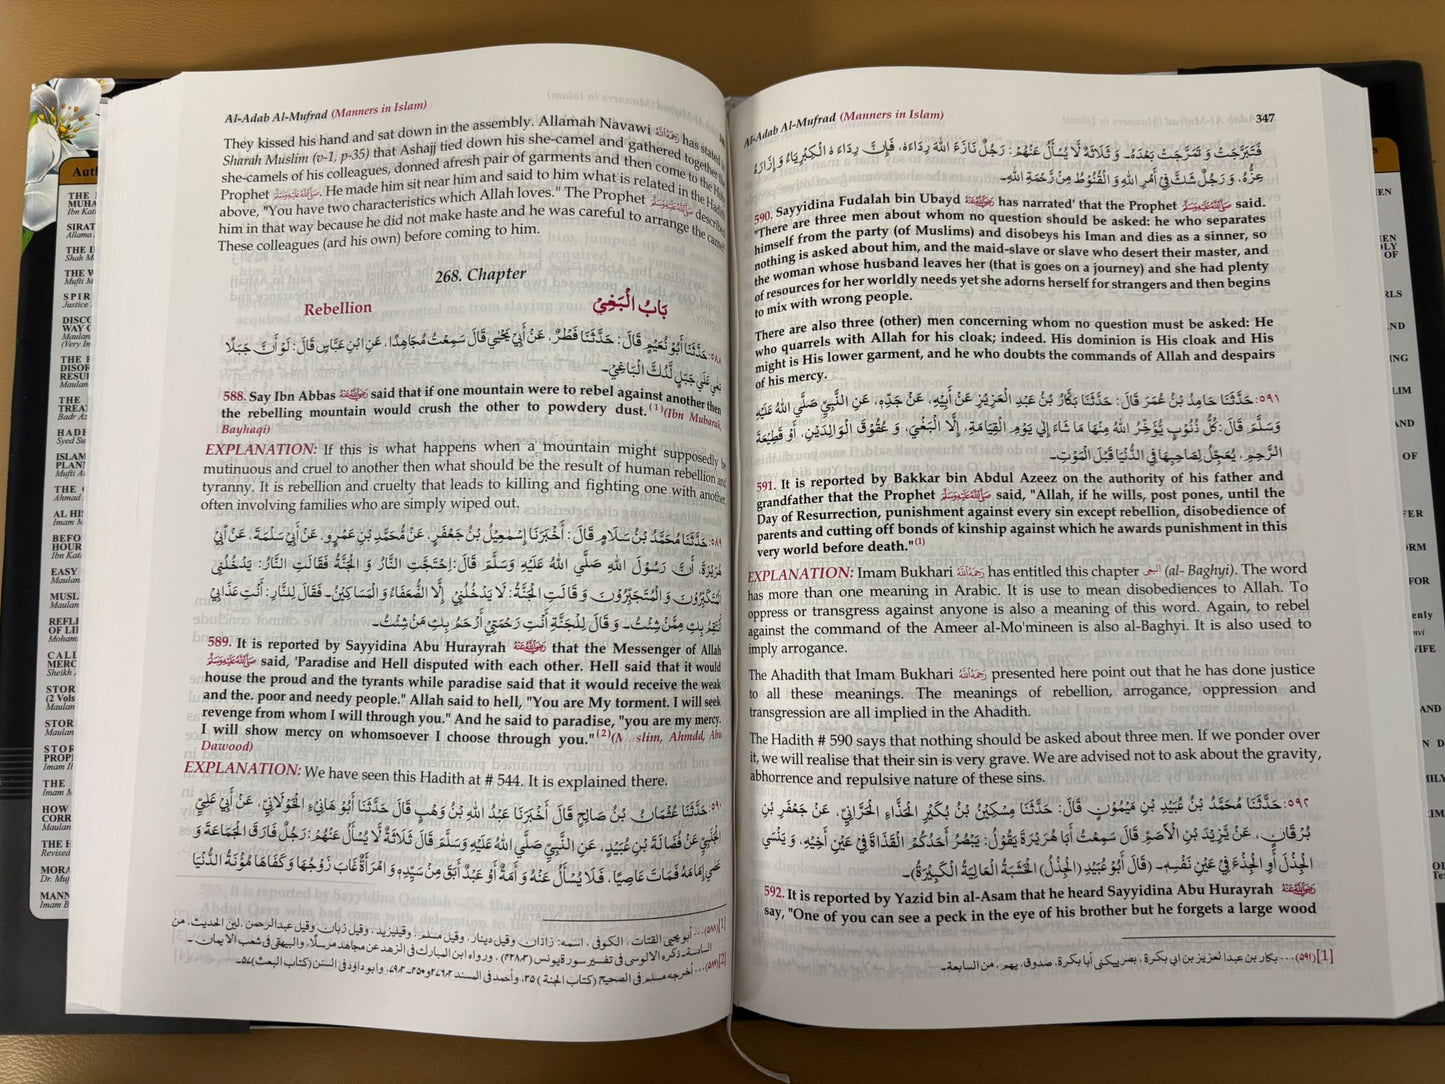 Al-Adab Al-Mufrad (Manners in Islam)
They kissed his hand and sat down in the assembly. Allamah Navawi has stated
Sharah Muslim (v-1, p-35) that Ashajj tied down his she-camel and gathered together the
she-camels of his colleagues, donned afresh pair of garments and then come to the
Prophet ﷺ. He made him sit near him and said to him what is related in the Hadith
above, "You have two characteristics which Allah loves." The Prophet ﷺ described
him in that way because he did not make haste and he was careful to arrange the camel
These colleagues (ard his own) before coming to him.
268. Chapter
Rebellion بَابُ الْبَغْيِ
٥٨٨: حَدَّثَنَا أَبُو نُعَيْمٍ قَالَ: حَدَّثَنَا فِطْرٌ، عَنْ أَبِي يَحْيَي قَالَ سَمِعْتُ مُجَاهِدًا، عَنِ ابْنِ عَبَّاسٍ قَالَ: لَوْ أَنَّ جَبَلًا
بَغٰي عَلَي جَبَلٍ لَدُكَّ الْبَاغِيْ۔
588. Say Ibn Abbas said that if one mountain were to rebel against another then
the rebelling mountain would crush the other to powdery dust. (1)(Ibn Mubarak,
Bayhaqi)
EXPLANATION: If this is what happens when a mountain might supposedly be
mutinuous and cruel to another then what should be the result of human rebellion and
tyranny. It is rebellion and cruelty that leads to killing and fighting one with another
often involving families who are simply wiped out.
٥٨٩: حَدَّثَنَا مُحَمَّدُ بْنُ سَلَامٍ قَالَ: أَخْبَرَنَا إِسْمٰعِيْلُ بْنُ جَعْفَرٍ، عَنْ مُحَمَّدِ بْنِ عَمْرٍو، عَنْ أَبِي سَلَمَةَ، عَنْ أَبِي
هُرَيْرَةَ، أَنَّ رَسُوْلَ اللّٰهِ صَلَّي اللّٰهُ عَلَيْهِ وَسَلَّمَ قَالَ: اِحْتَجَّتِ النَّارُ وَ الْجَنَّةُ فَقَالَتِ النَّارُ: يَدْخُلُنِي
الْمُتَكَبِّرُوْنَ وَ الْمُتَجَبِّرُوْنَ وَ قَالَتِ الْجَنَّةُ: لَا يَدْخُلُنِي إِلَّا الضُّعَفَاءُ وَ الْمَسَاكِيْنُ۔ فَقَالَ لِلنَّارِ: أَنْتِ عَذَابِي
أَنْتَقِمُ بِكِ مِمَّنْ شِئْتُ۔ وَ قَالَ لِلْجَنَّةِ أَنْتِ رَحْمَتِي أَرْحَمُ بِكِ مَنْ شِئْتُ۔
589. It is reported by Sayyidina Abu Hurayrah that the Messenger of Allah
ﷺ said, 'Paradise and Hell disputed with each other. Hell said that it would
house the proud and the tyrants while paradise said that it would receive the weak
and the. poor and needy people." Allah said to hell, "You are My torment. I will seek
revenge from whom I will through you." And he said to paradise, "you are my mercy.
I will show mercy on whomsoever I choose through you." (2)(M slim, Ahmdd, Abu
Dawood)
EXPLANATION: We have seen this Hadith at # 544. It is explained there.
٥٩٠: حَدَّثَنَا عُثْمَانُ بْنُ صَالِحٍ قَالَ أَخْبَرَنَا عَبْدُ اللّٰهِ بْنُ وَهْبٍ قَالَ حَدَّثَنَا أَبُو هَانِيءٍ الْخَوْلَانِيُّ، عَنْ أَبِي عَلِيٍّ
الْجَنْبِيِّ عَنْ فُضَالَةَ بْنِ عُبَيْدٍ، عَنِ النَّبِيِّ صَلَّي اللّٰهُ عَلَيْهِ وَسَلَّمَ قَالَ ثَلَاثَةٌ لَا يُسْأَلُ عَنْهُمْ: رَجُلٌ فَارَقَ الْجَمَاعَةَ وَ
عَصٰي إِمَامَهُ فَمَاتَ عَاصِيًا، فَلَا يُسْأَلُ عَنْهُ وَ أَمَةٌ أَوْ عَبْدٌ أَبَقَ مِنْ سَيِّدِهِ وَ امْرَأَةٌ غَابَ زَوْجُهَا وَ كَفَاهَا مُؤْنَةَ الدُّنْيَا
[1](٥٨٨)... أبو يحيى القتات ، الكوفى ، اسمه: زاذان وقيل دينار، وقيل مسلم، وقيل يزيد، وقيل زبان وقيل عبدالرحمن، لين الحديث، من
السادسة۔ ذكره الالوسى فى تفسير سورة يونس، ورواه ابن المبارك فى الزهد عن مجاهد مرسلًا، والبيهقى فى شعب الايمان۔
[2](٥٨٩)... أخرجه مسلم فى الصحيح (كتاب الجنة)
Al-Adab Al-Mufrad (Manners in Islam) 347
فَتَبَرَّجَتْ وَ تَمَرَّجَتْ بَعْدَهُ۔ وَ ثَلَاثَةٌ لَا يُسْأَلُ عَنْهُمْ: رَجُلٌ نَازَعَ اللّٰهَ رِدَاءَهُ، فَإِنَّ رِدَاءَهُ الْكِبْرِيَاءُ وَ إِزَارَهُ
عِزُّهُ، وَ رَجُلٌ شَكَّ فِيْ أَمْرِ اللّٰهِ وَ الْقُنُوْطُ مِنْ رَّحْمَةِ اللّٰهِ۔
590. Sayyidina Fudalah bin Ubayd has narrated' that the Prophet ﷺ said.
"There are three men about whom no question should be asked: he who separates
himself from the party (of Muslims) and disobeys his Iman and dies as a sinner, so
nothing is asked about him, and the maid-slave or slave who desert their master, and
the woman whose husband leaves her (that is goes on a journey) and she had plenty
of resources for her worldly needs yet she adorns herself for strangers and then begins
to mix with wrong people.
There are also three (other) men concerning whom no question must be asked: He
who quarrels with Allah for his cloak; indeed. His dominion is His cloak and His
might is His lower garment, and he who doubts the commands of Allah and despairs
of his mercy.
٥٩١: حَدَّثَنَا حَامِدُ بْنُ عُمَرَ قَالَ: حَدَّثَنَا بَكَّارُ بْنُ عَبْدِ الْعَزِيْزِ عَنْ أَبِيْهِ، عَنْ جَدِّهِ، عَنِ النَّبِيِّ صَلَّي اللّٰهُ عَلَيْهِ
وَسَلَّمَ قَالَ: كُلُّ ذُنُوْبٍ يُؤَخِّرُ اللّٰهُ مِنْهَا مَا شَاءَ إِلٰي يَوْمِ الْقِيَامَةِ، إِلَّا الْبَغْيَ، وَ عُقُوْقَ الْوَالِدَيْنِ، أَوْ قَطِيْعَةَ
الرَّحِمِ، يُعَجِّلُ لِصَاحِبِهَا فِي الدُّنْيَا قَبْلَ الْمَوْتِ۔
591. It is reported by Bakkar bin Abdul Azeez on the authority of his father and
grandfather that the Prophet ﷺ said, "Allah, if he wills, post pones, until the
Day of Resurrection, punishment against every sin except rebellion, disobedience of
parents and cutting off bonds of kinship against which he awards punishment in this
very world before death."(1)
EXPLANATION: Imam Bukhari has entitled this chapter البغى (al- Baghyi). The word
has more than one meaning in Arabic. It is use to mean disobediences to Allah. To
oppress or transgress against anyone is also a meaning of this word. Again, to rebel
against the command of the Ameer al-Mo'mineen is also al-Baghyi. It is also used to
imply arrogance.
The Ahadith that Imam Bukhari presented here point out that he has done justice
to all these meanings. The meanings of rebellion, arrogance, oppression and
transgression are all implied in the Ahadith.
The Hadith # 590 says that nothing should be asked about three men. If we ponder over
it, we will realise that their sin is very grave. We are advised not to ask about the gravity,
abhorrence and repulsive nature of these sins.
٥٩٢: حَدَّثَنَا مُحَمَّدُ بْنُ عُبَيْدِ بْنِ مَيْمُوْنٍ قَالَ: حَدَّثَنَا مِسْكِيْنُ بْنُ بُكَيْرٍ الْحَذَّاءُ الْحَرَّانِيُّ، عَنْ جَعْفَرِ بْنِ
بُرْقَانَ، عَنْ يَّزِيْدَ بْنِ الْأَصَمِّ قَالَ سَمِعْتُ أَبَا هُرَيْرَةَ يَقُوْلُ: يَبْصُرُ أَحَدُكُمُ الْقَذَاةَ فِيْ عَيْنِ أَخِيْهِ، وَ يَنْسَي
الْجِذْلَ أَوِ الْجِذْعَ فِيْ عَيْنِ نَفْسِهِ۔ (قَالَ أَبُوْ عُبَيْدٍ (الْجِذْلُ) الْخَشَبَةُ الْعَالِيَةُ الْكَبِيْرَةُ)۔
592. It is reported by Yazid bin al-Asam that he heard Sayyidina Abu Hurayrah
say, "One of you can see a peck in the eye of his brother but he forgets a large wood
[1](٥٩١)... بكار بن عبدالعزيز بن ابى بكرة، بصرى يكنى أبا بكرة، صدوق، يهم، من السابعة۔